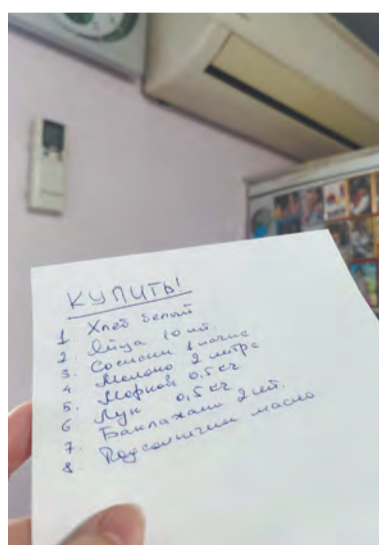 КУПИТЬ!
1 Хлеб белый
2. Яйца 10 шт.
3. Сосиски 1 пачка
4 Молоко 2 литра
5. Морковь 0,5 кг
6 Лук 0,5 кг
7. Баклажаны 2 шт.
8 Подсолнечн масло